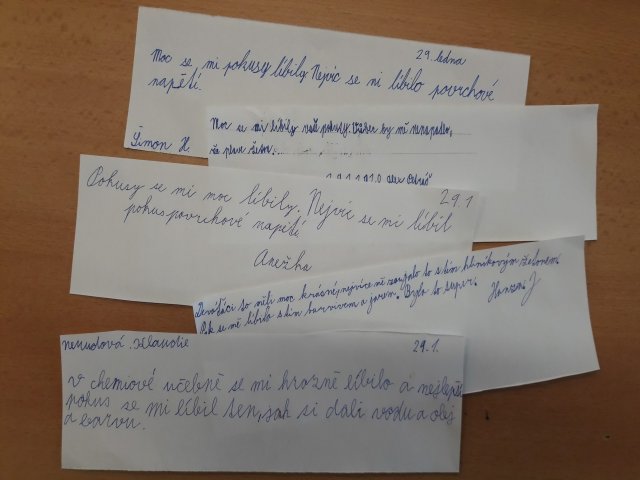 29. ledna
Moc se mi pokusy líbily. Nejvíc se mi líbilo povrchové
napětí.
Šimon H.
Moc se mi líbily vaše pokusy. Vůbec by mě nenapadlo,
že
29.1
Pokusy se mi moc líbily. Nejvíc se mi líbil
pokus povrchové napětí
Anežka
Deváťáci to měli moc krásné, nejvíce mě zaujalo to s tím hliníkovým
Pak se mě líbilo s tím barvivem a Bylo to super.
Nerudová Klaudie
29.1.
V chemiové učebně se mi hrozně líbilo a nejlepší
pokus se mi líbil ten, jak si dali vodu a olej
a barvu.